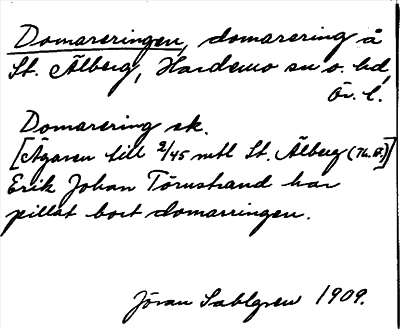 Domareringen, domarering å
St. Älberg, Hardemo sn o. hd,
Ör. l.
Domarering sk.
[Ägaren till 2/45 mtl St. Älberg (Th. B.)]
Erik Johan Törnstrand har
pillat bort domarringen.
Jöran Sahlgren 1909.